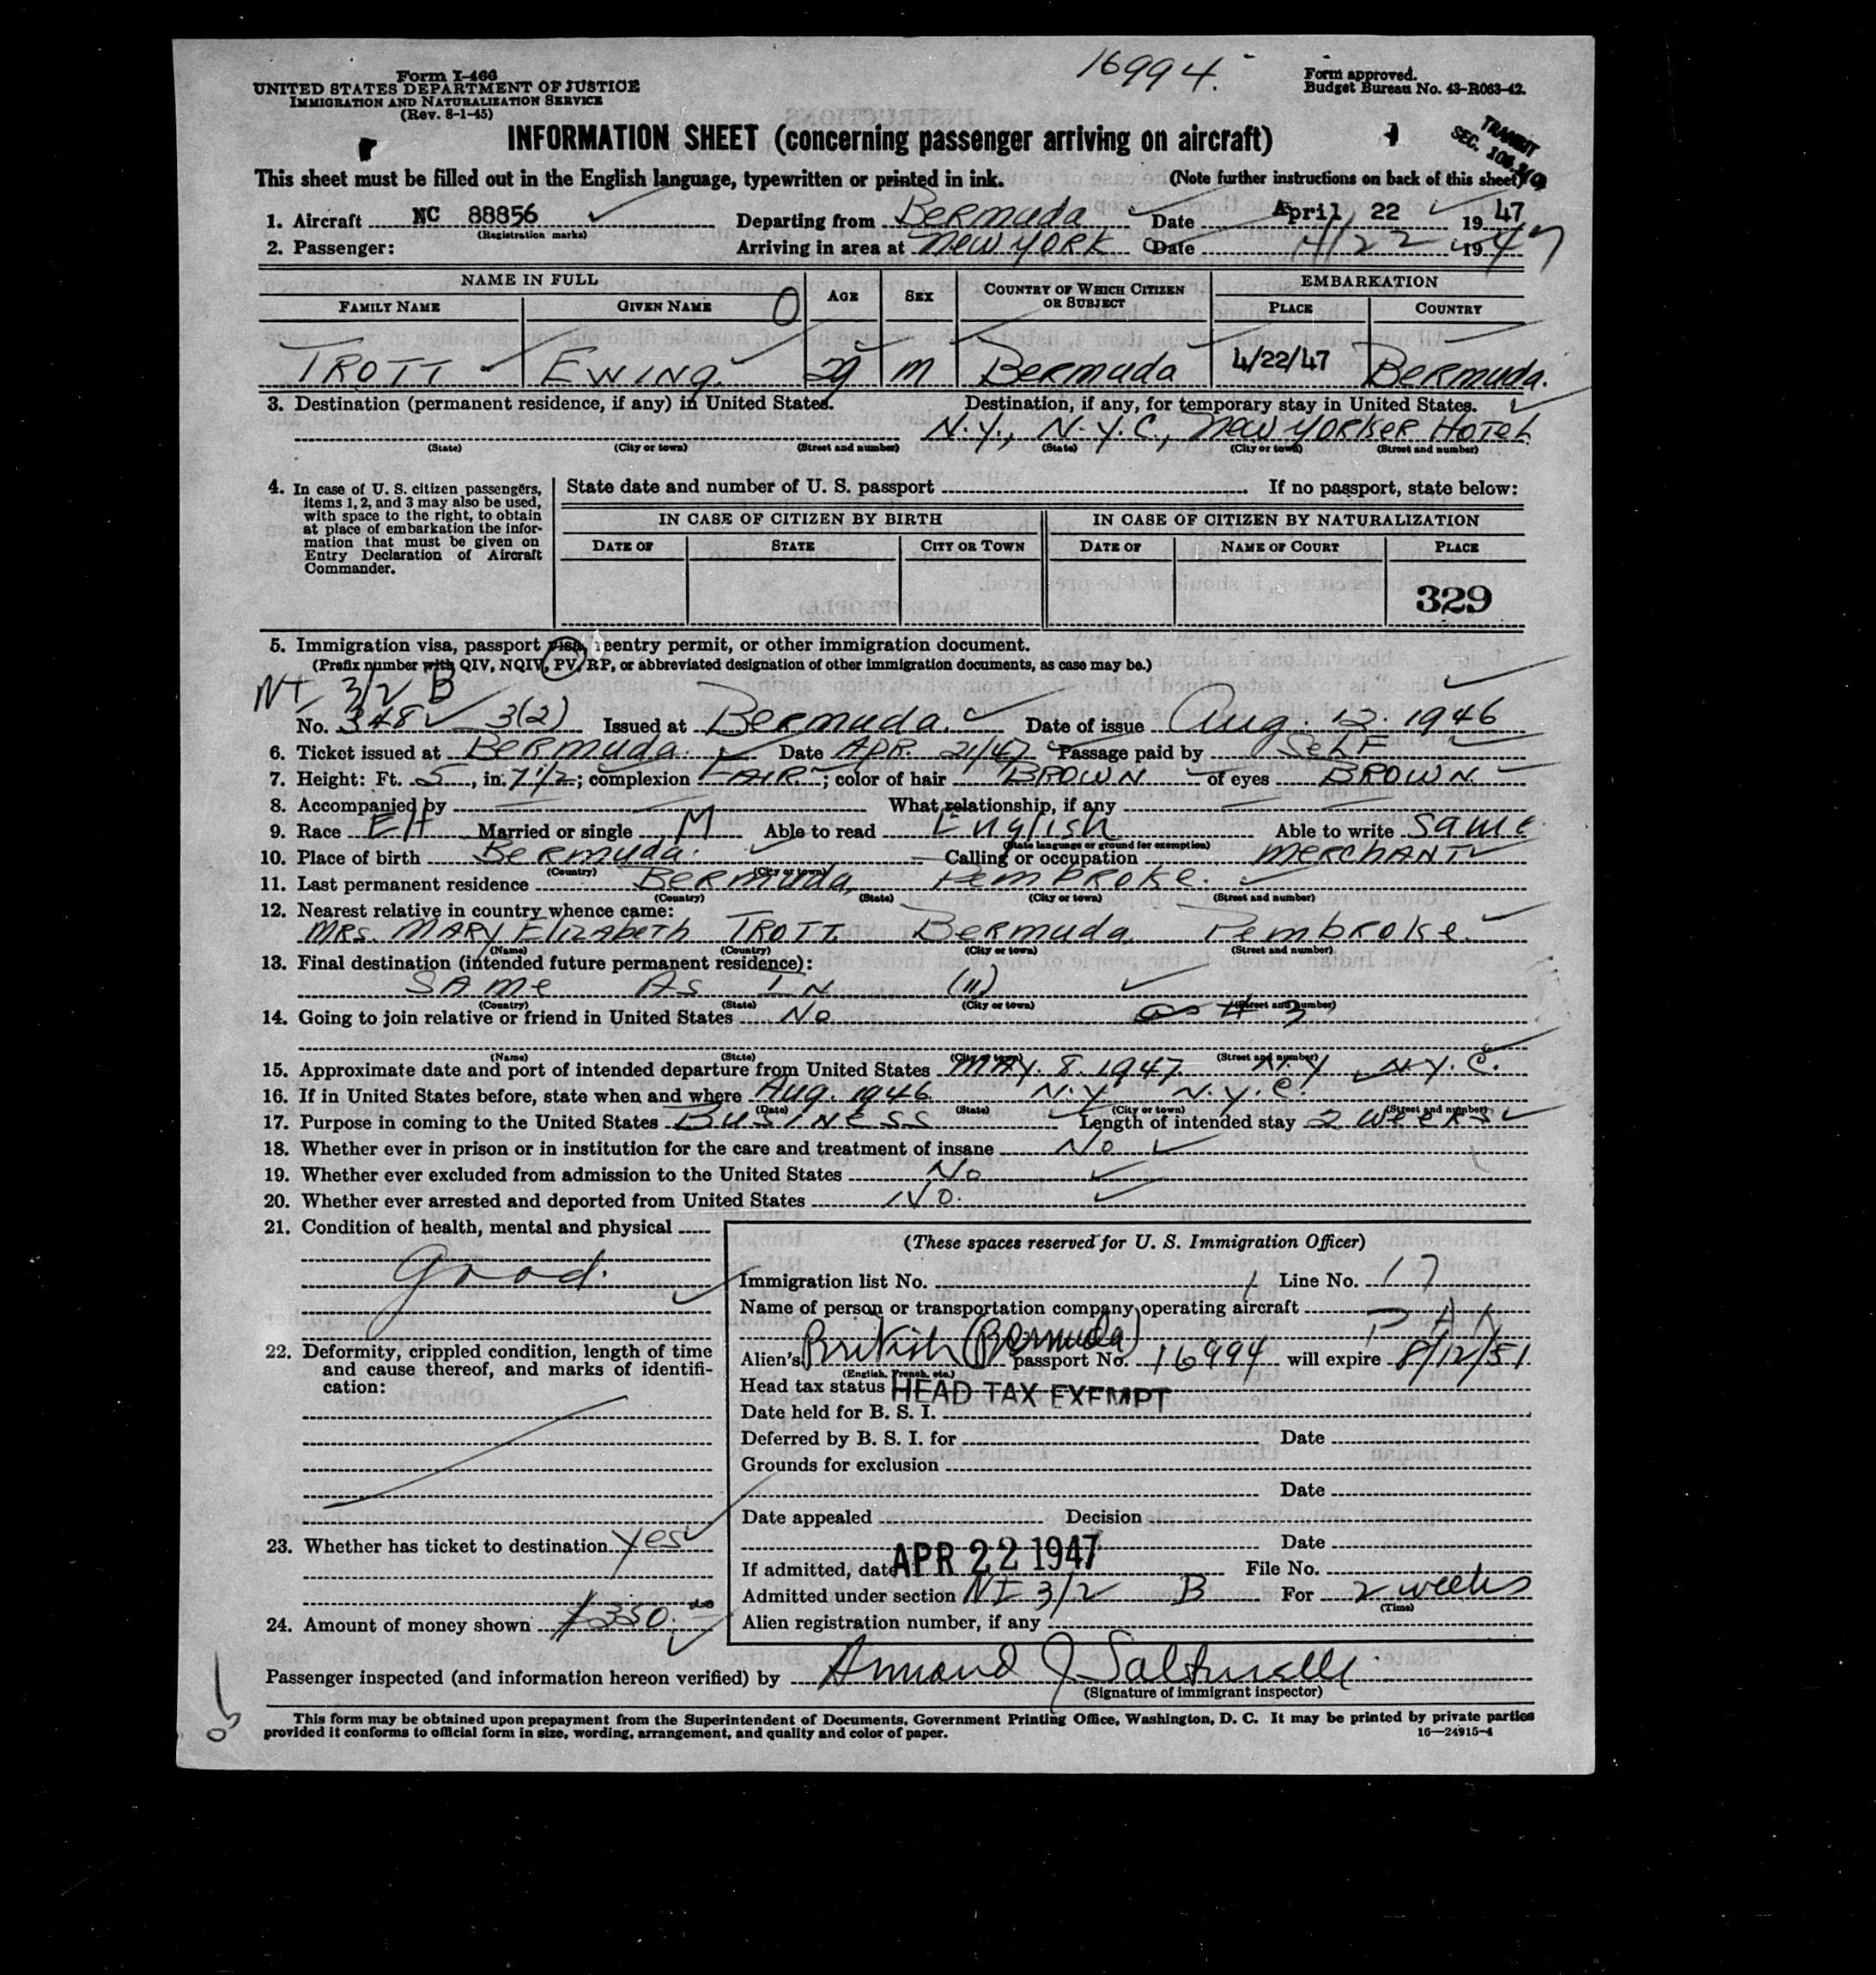 16994.
Form I-466
UNITED STATES DEPARTMENT OF JUSTICE
IMMIGRATION AND NATURALIZATION SERVICE
(Rev. 8-1-45)
Form approved.
Budget Bureau No. 43-R063-42.
INFORMATION SHEET (concerning passenger arriving on aircraft)
TRANSIT
SEC.
This sheet must be filled out in the English language, typewritten or printed in ink. (Note further instructions on back of this sheet)
1. Aircraft NC 88856 Departing from Bermuda Date April 22 1947
(Registration marks)
2. Passenger: Arriving in area at New York Date 4/22 1947
NAME IN FULL AGE SEX COUNTRY OF WHICH CITIZEN OR SUBJECT EMBARKATION
FAMILY NAME GIVEN NAME PLACE COUNTRY
TROTT EWING 29 M Bermuda 4/22/47 Bermuda.
3. Destination (permanent residence, if any) in United States. Destination, if any, for temporary stay in United States.
N.Y., N.Y.C., New Yorker Hotel
(State) (City or town) (Street and number) (State) (City or town) (Street and number)
4. In case of U. S. citizen passengers, items 1, 2, and 3 may also be used, with space to the right, to obtain at place of embarkation the information that must be given on Entry Declaration of Aircraft Commander.
State date and number of U. S. passport If no passport, state below:
IN CASE OF CITIZEN BY BIRTH IN CASE OF CITIZEN BY NATURALIZATION
DATE OF STATE CITY OR TOWN DATE OF NAME OF COURT PLACE
329
5. Immigration visa, passport visa, reentry permit, or other immigration document.
(Prefix number with QIV, NQIV, PV, RP, or abbreviated designation of other immigration documents, as case may be.)
NI 3/2 B
No. 348 3(2) Issued at Bermuda. Date of issue Aug. 12. 1946
6. Ticket issued at Bermuda. Date APR. 21/47 Passage paid by Self
7. Height: Ft. 5, in. 7 1/2; complexion FAIR; color of hair BROWN of eyes BROWN
8. Accompanied by What relationship, if any
9. Race EH Married or single M Able to read English Able to write Same
(State language or ground for exemption)
10. Place of birth Bermuda. Calling or occupation MERCHANT
(Country) (City or town)
11. Last permanent residence Bermuda, Pembroke.
(Country) (State) (City or town) (Street and number)
12. Nearest relative in country whence came:
MRS. MARY Elizabeth TROTT Bermuda, Pembroke.
(Name) (Country) (City or town) (Street and number)
13. Final destination (intended future permanent residence):
SAme As IN (11)
(Country) (State) (City or town) (Street and number)
14. Going to join relative or friend in United States No as # 3
(Name) (State) (City or town) (Street and number)
15. Approximate date and port of intended departure from United States MAY. 8. 1947. N.Y, N.Y.C.
16. If in United States before, state when and where Aug. 1946 N.Y. N.Y.C.
(Date) (State) (City or town) (Street and number)
17. Purpose in coming to the United States Business Length of intended stay 2 weeks
18. Whether ever in prison or in institution for the care and treatment of insane No
19. Whether ever excluded from admission to the United States No
20. Whether ever arrested and deported from United States No.
21. Condition of health, mental and physical
good.
22. Deformity, crippled condition, length of time and cause thereof, and marks of identification:
23. Whether has ticket to destination yes
24. Amount of money shown $350.00
(These spaces reserved for U. S. Immigration Officer)
Immigration list No. 1 Line No. 17
Name of person or transportation company operating aircraft
PAN
Alien's British (Bermuda) passport No. 16994 will expire 8/12/51
(English, French, etc.)
Head tax status HEAD TAX EXEMPT
Date held for B. S. I.
Deferred by B. S. I. for Date
Grounds for exclusion
Date
Date appealed Decision
Date
If admitted, date APR 22 1947 File No.
Admitted under section NI 3/2 B For 2 weeks
(Time)
Alien registration number, if any
Passenger inspected (and information hereon verified) by Armand J
(Signature of immigrant inspector)
This form may be obtained upon prepayment from the Superintendent of Documents, Government Printing Office, Washington, D. C. It may be printed by private parties
provided it conforms to official form in size, wording, arrangement, and quality and color of paper. 16—24915-4